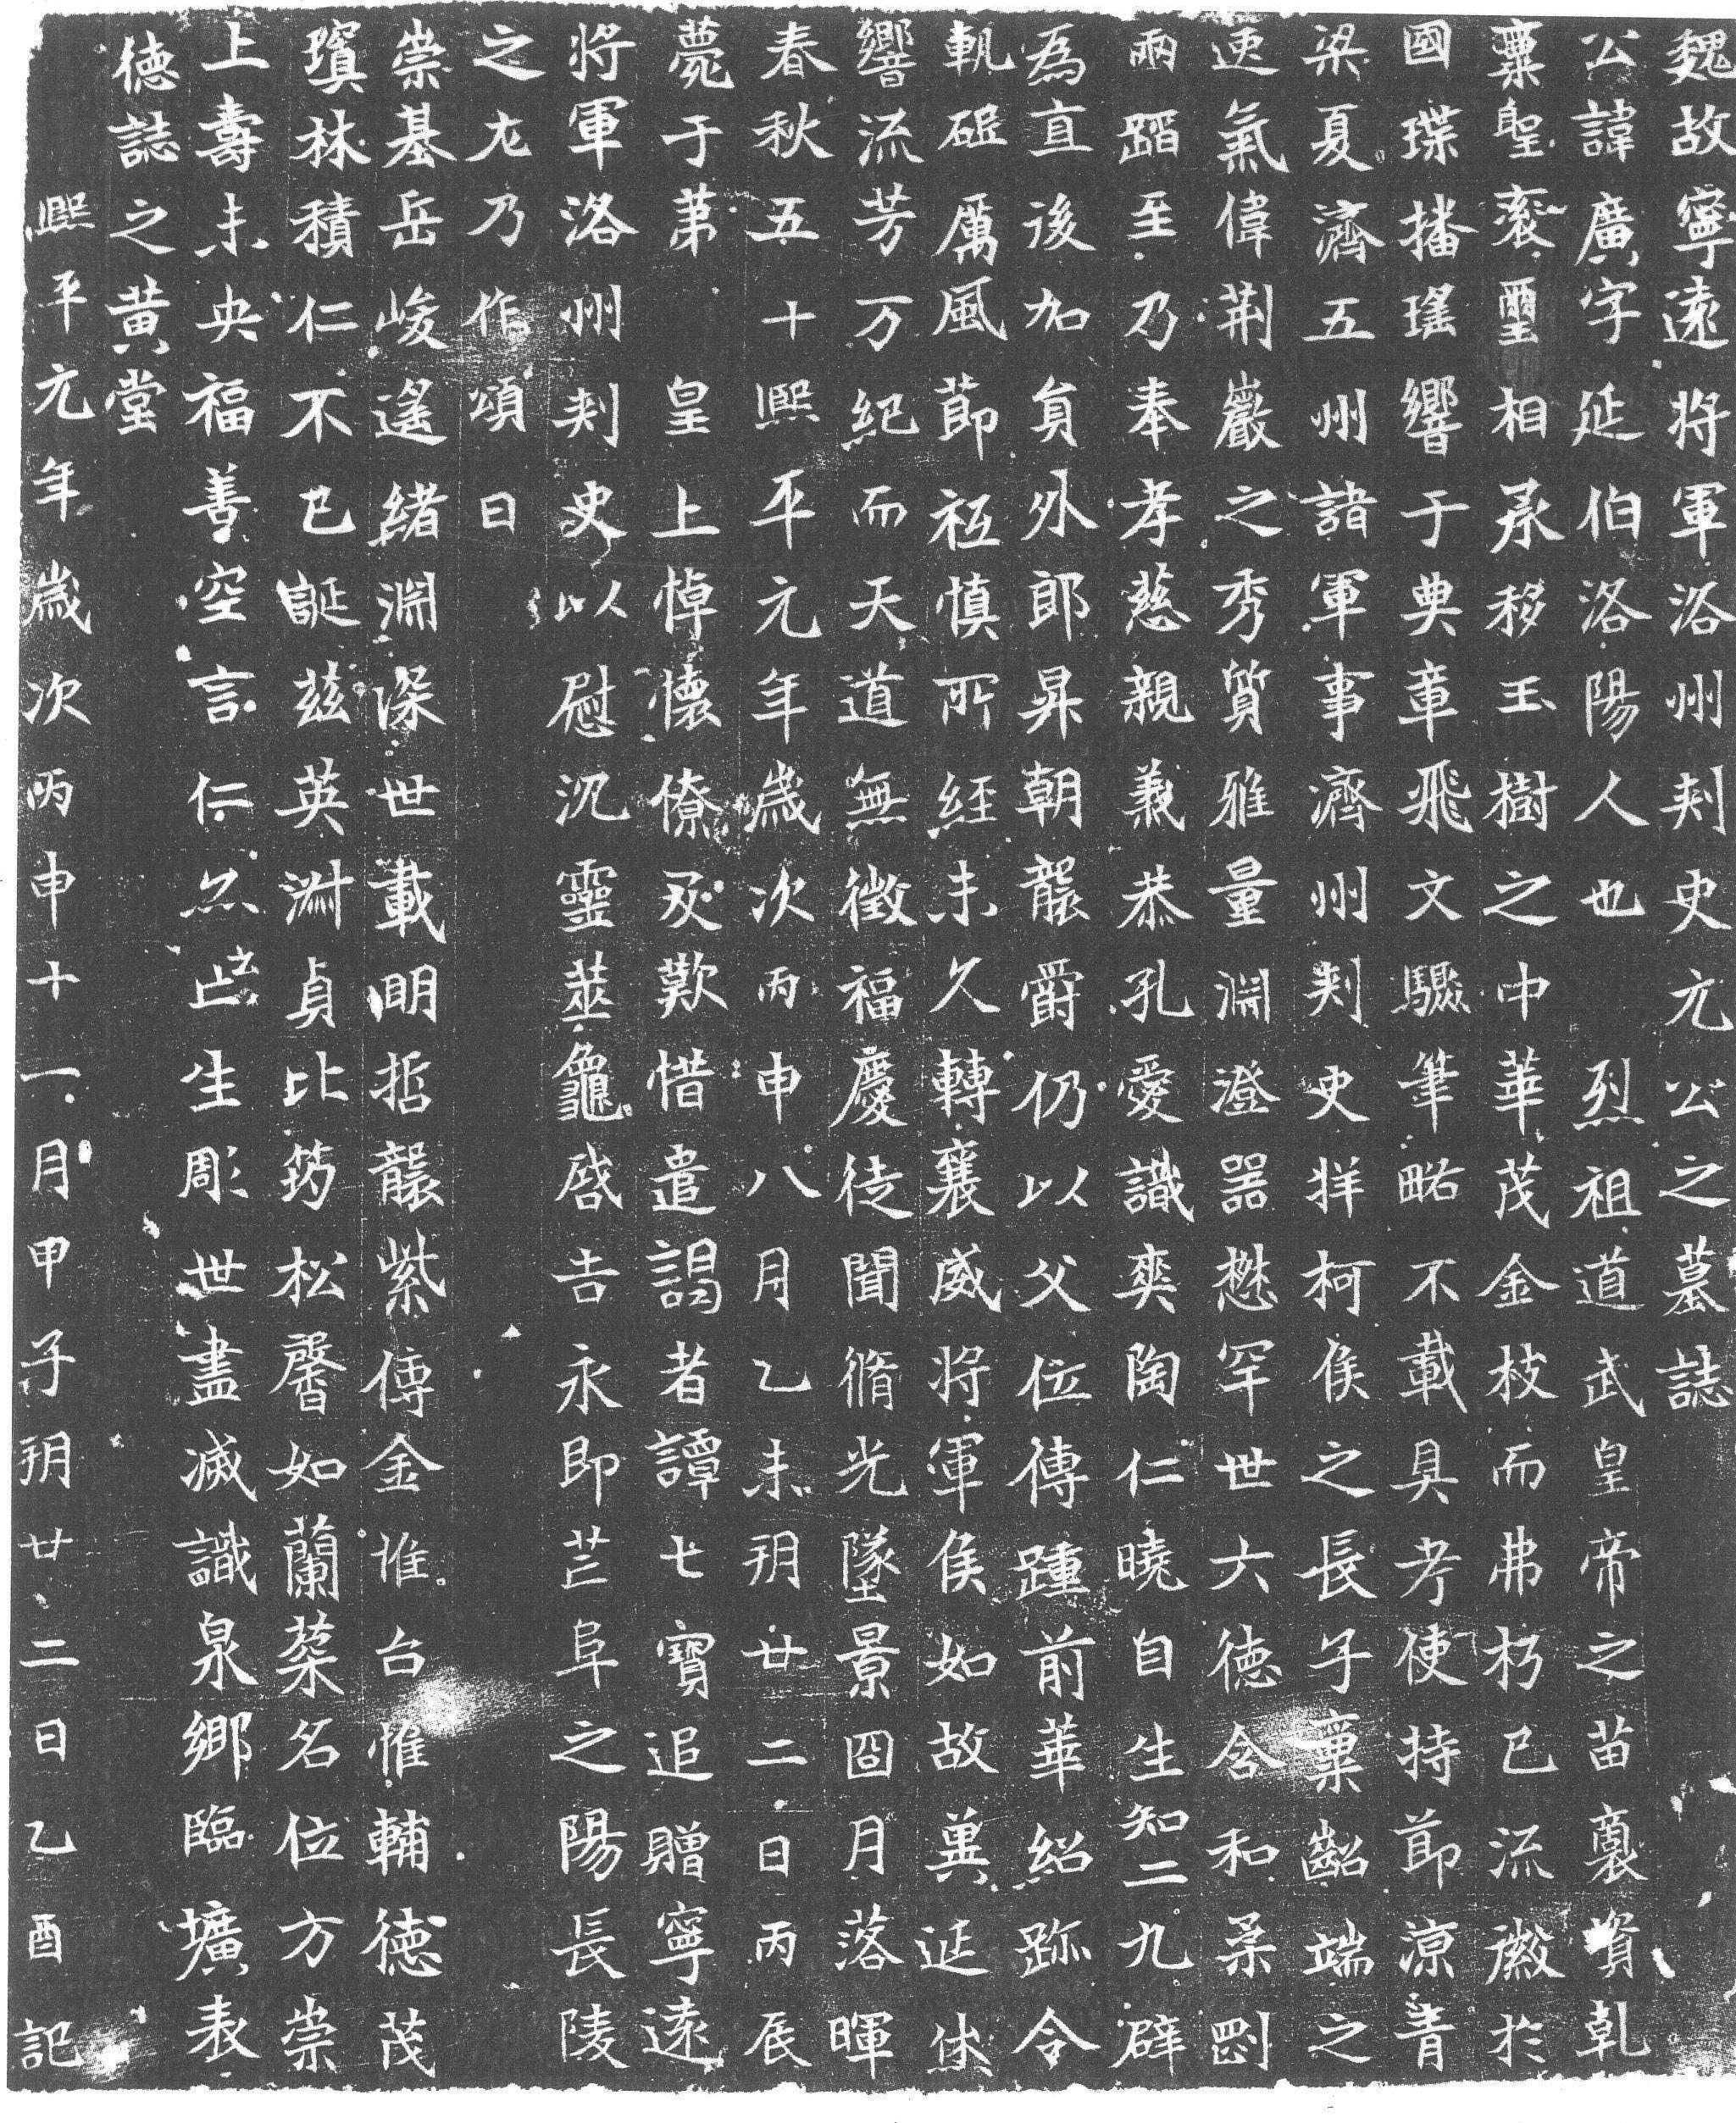 魏故寧遠將軍洛州刾史元公之墓誌
公諱廣字延伯洛陽人也烈祖道武皇帝之苗裔資乹
稟聖袞璽相承移玉樹之中華茂金枝而弗朽已流徽於
國牒播瑤響于典車飛文驟筆略不載具考使持莭涼青
梁夏濟五州諸軍事濟州刾史牂柯侯之長子稟齠端之
速氣偉荊巖之秀質雅量淵澄器懋罕世六德含和柔剛
兩蹈至乃奉孝慈親義恭孔愛識奕陶仁曉自生知二九辟
為直後加負外郎昇朝龍爵仍以父位傳踵前華紹跡令
軌砥厲風莭祗慎所經未久轉襄威將軍侯如故兾延休
響流芳万紀而天道無徵福慶徒聞脩光墜景囧月落暉
春秋五十熙平元年歲次丙申八月乙未玥廿二日丙辰
薨于第皇上悼懷僚友歎惜遣謁者譚七寶追贈寧遠
將軍洛州刾史以慰沉靈莁龜啓吉永即芒阜之陽長陵
之左乃作頌曰
崇基岳峻遙緒淵深世載明哲龍紫傳金惟台惟輔德茂
瓊林積仁不已誕茲英淋貞比筠松馨如蘭蕖名位方崇
上壽未央福善空言仁然亡生彫世盡滅識泉鄉臨壙表
德誌之黃堂
熙平元年歲次丙申十一月甲子玥廿二日乙酉記